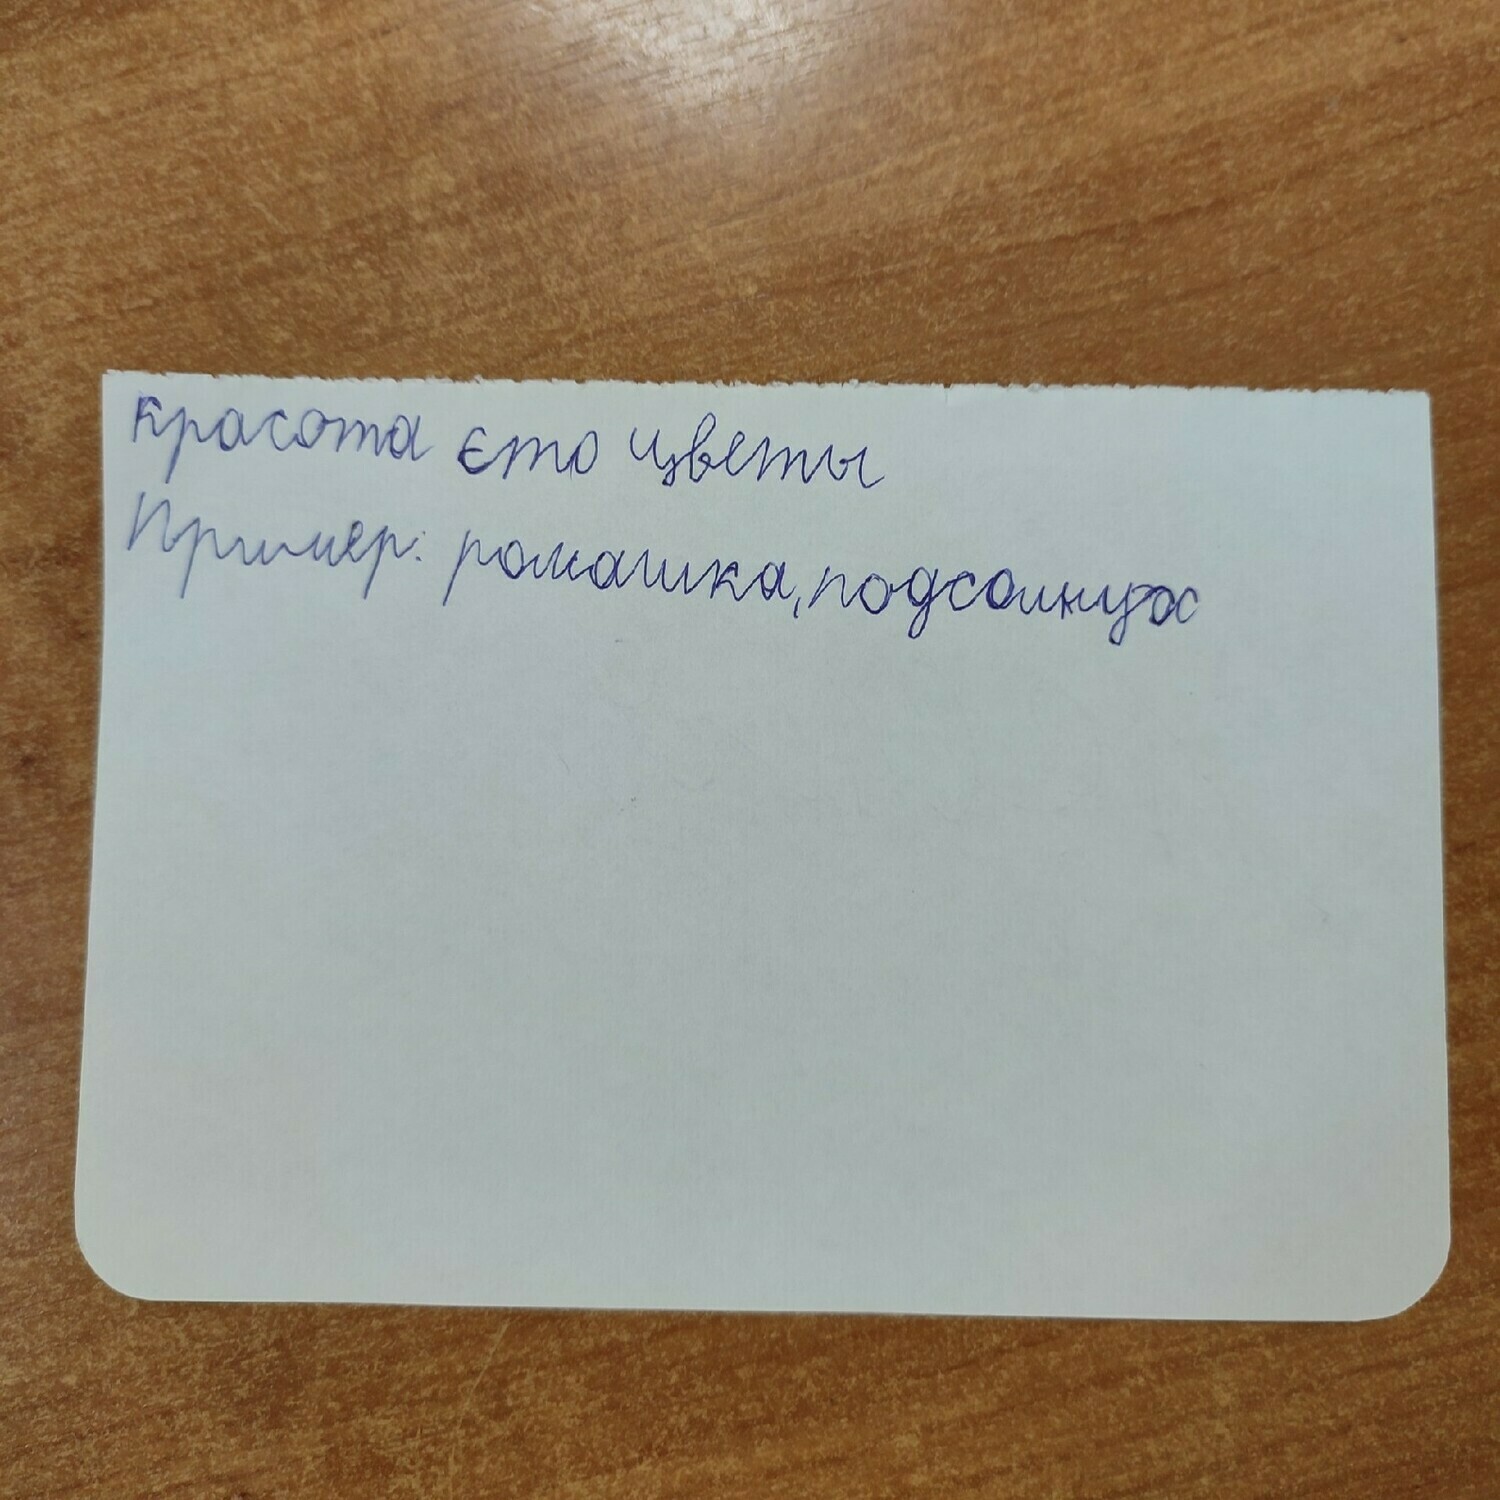 Красота єто цветы
Пример: ромашка, подсолнух